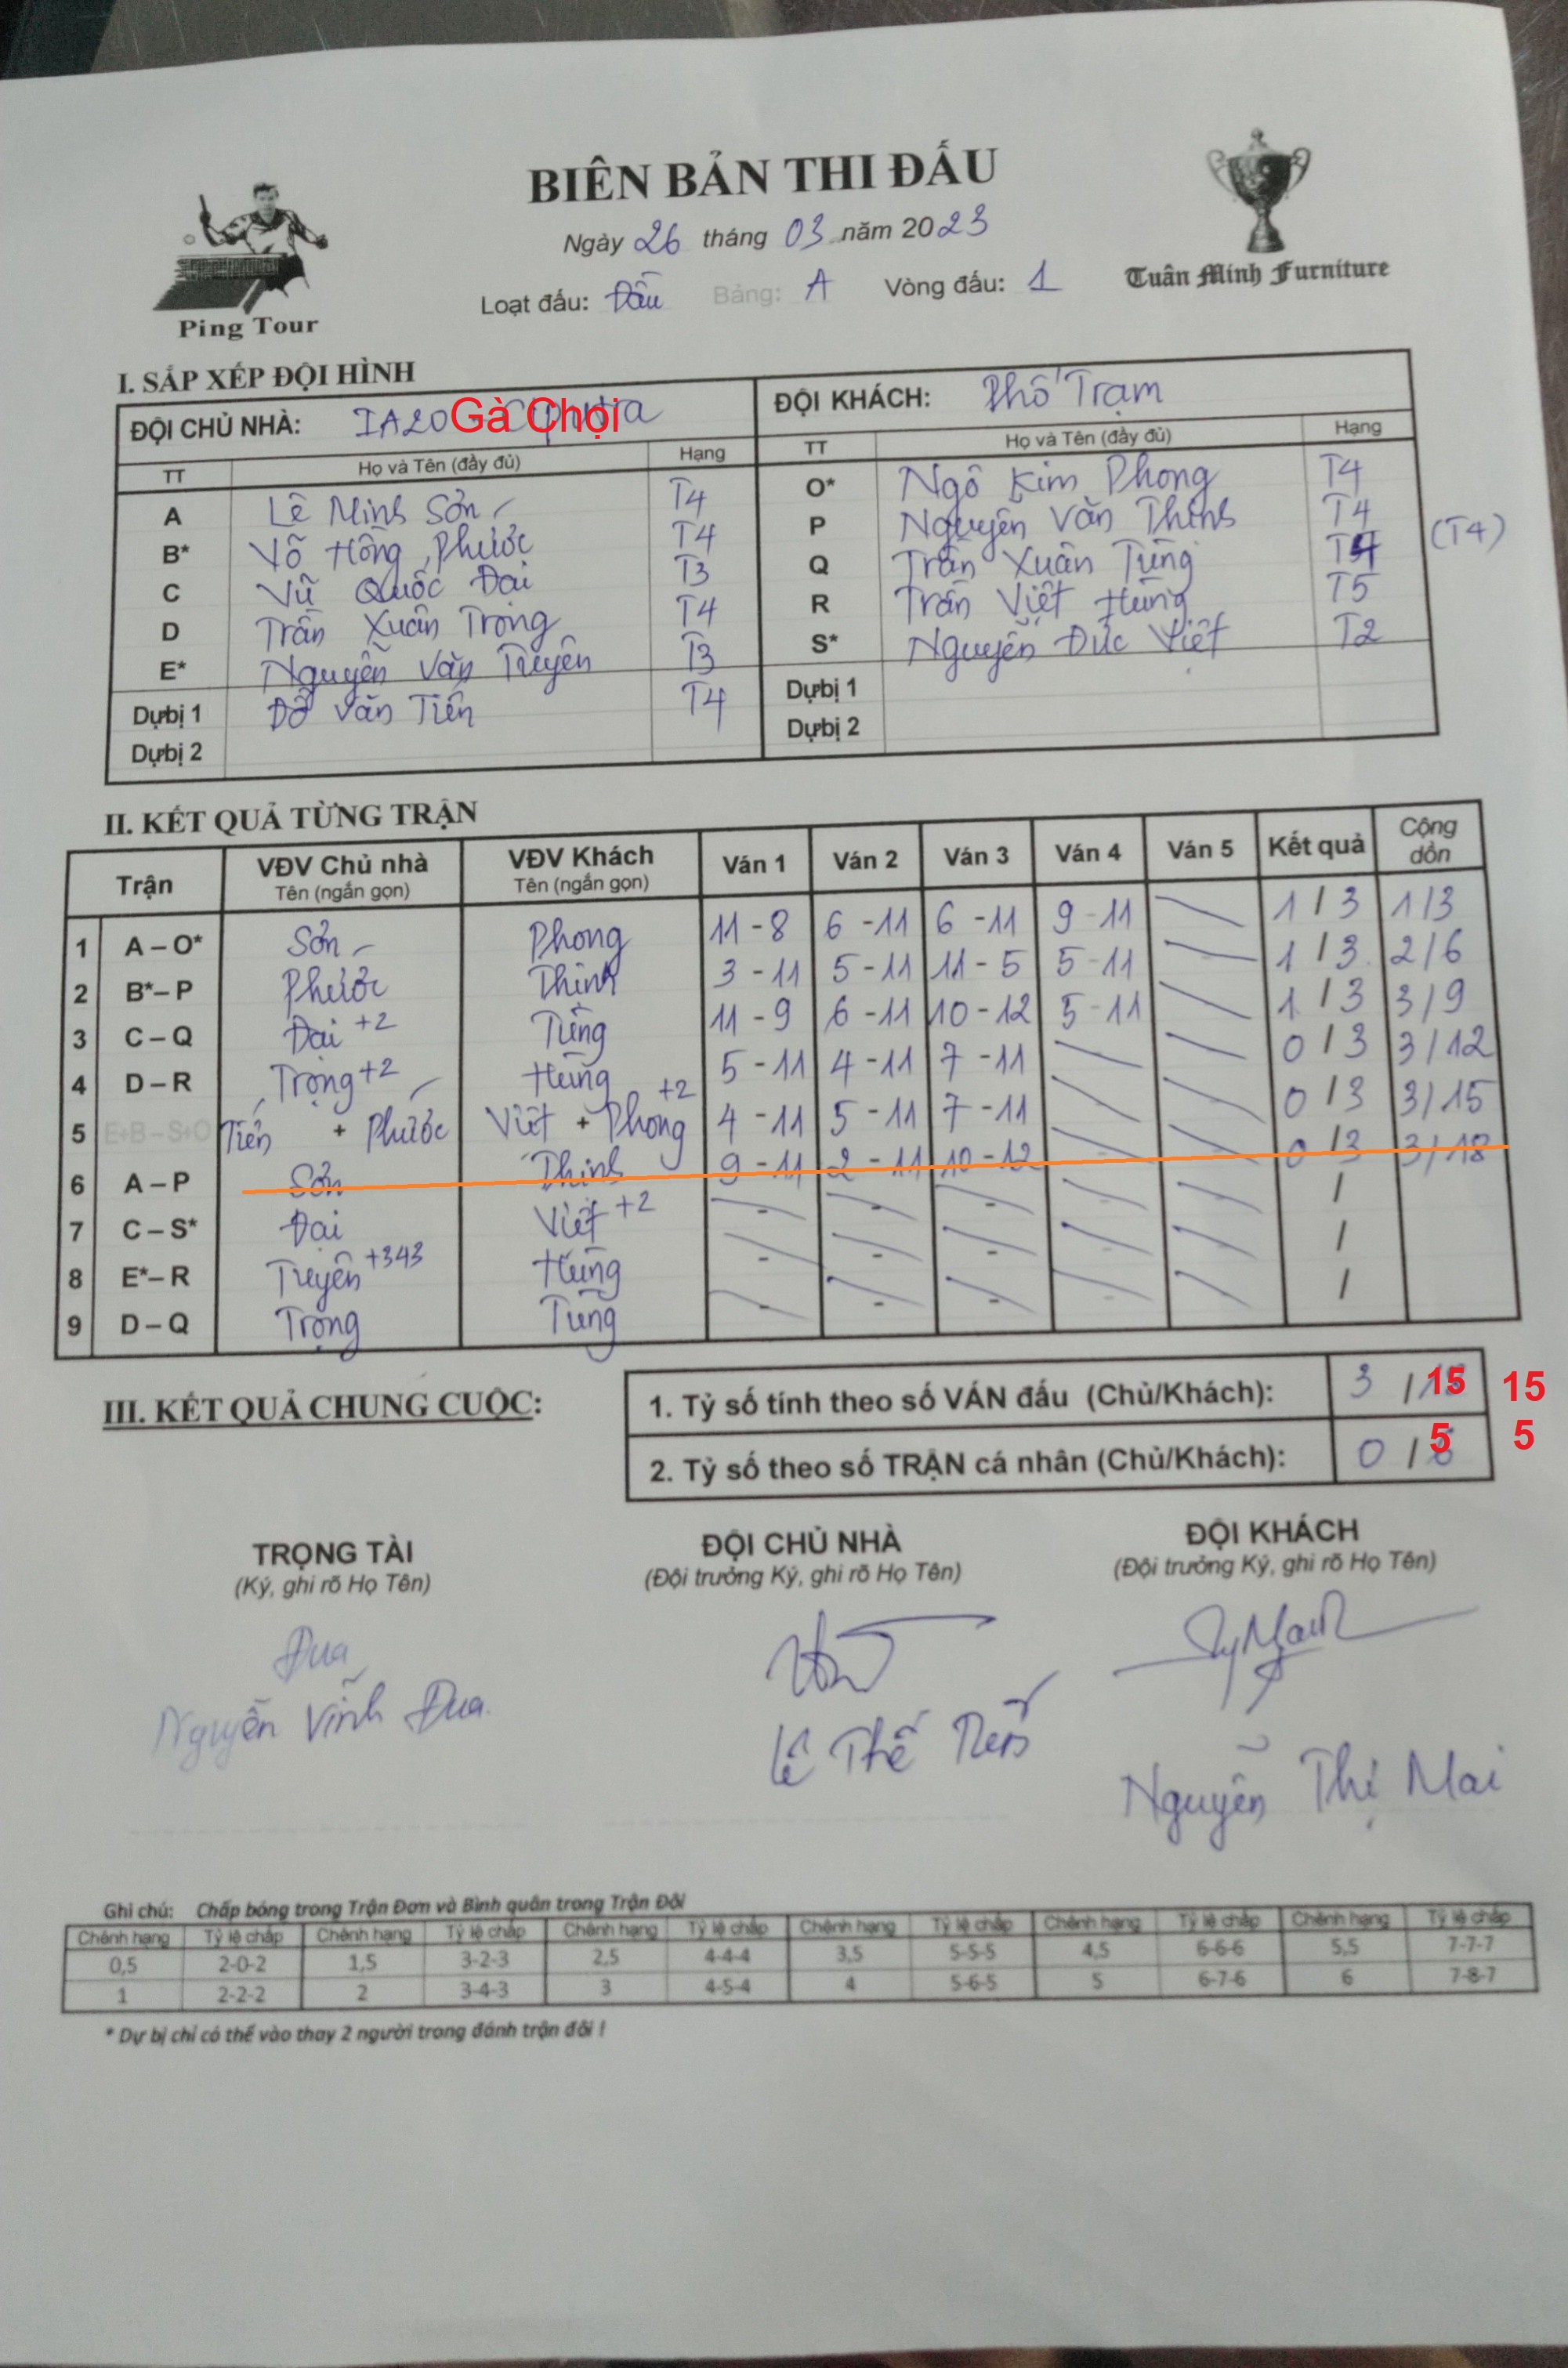 BIÊN BẢN THI ĐẤU
Ngày 26 tháng 03 năm 2023
Loạt đấu: Đầu Bảng: A Vòng đấu: 1
Ping Tour
Tuân Minh Furniture
I. SẮP XẾP ĐỘI HÌNH
ĐỘI CHỦ NHÀ: IA20 Gà Chọi ĐỘI KHÁCH: Phố Trạm
TT Họ và Tên (đầy đủ) Hạng TT Họ và Tên (đầy đủ) Hạng
A Lê Minh Sơn T4 O* Ngô Kim Phong T4
B* Võ Hồng Phước T4 P Nguyễn Văn Thinh T4
C Vũ Quốc Đại T3 Q Trần Xuân Tùng T4 (T4)
D Trần Xuân Trọng T4 R Trần Việt Hùng T5
E* Nguyễn Văn Tuyên T3 S* Nguyễn Đức Việt T2
Dự bị 1 Đỗ Văn Tiến T4 Dự bị 1
Dự bị 2 Dự bị 2
II. KẾT QUẢ TỪNG TRẬN
Trận VĐV Chủ nhà VĐV Khách Ván 1 Ván 2 Ván 3 Ván 4 Ván 5 Kết quả Cộng dồn
Tên (ngắn gọn) Tên (ngắn gọn)
1 A – O* Sơn Phong 11 - 8 6 - 11 6 - 11 9 - 11 1 / 3 1/3
2 B* – P Phước Thinh 3 - 11 5 - 11 11 - 5 5 - 11 1 / 3 2/6
3 C – Q Đại +2 Tùng 11 - 9 6 - 11 10 - 12 5 - 11 1 / 3 3/9
4 D – R Trọng +2 Hùng 5 - 11 4 - 11 7 - 11 0 / 3 3/12
5 E+B – S+O Tiến + Phước Việt + Phong +2 4 - 11 5 - 11 7 - 11 0 / 3 3/15
6 A – P Sơn Thinh 9 - 11 2 - 11 10 - 12 0 / 3 3/18
7 C – S* Đại Việt +2 - - - - /
8 E* – R Tuyên +343 Hùng - - - - /
9 D – Q Trọng Tùng - - - - /
III. KẾT QUẢ CHUNG CUỘC:
1. Tỷ số tính theo số VÁN đấu (Chủ/Khách): 3 / 15 15
2. Tỷ số theo số TRẬN cá nhân (Chủ/Khách): 0 / 5 5
TRỌNG TÀI ĐỘI CHỦ NHÀ ĐỘI KHÁCH
(Ký, ghi rõ Họ Tên) (Đội trưởng Ký, ghi rõ Họ Tên) (Đội trưởng Ký, ghi rõ Họ Tên)
Đua
Nguyễn Vĩnh Đua Lê Thế Nguyễn Thị Mai
Ghi chú: Chấp bóng trong Trận Đơn và Bình quân trong Trận Đôi
Chênh hạng Tỷ lệ chấp Chênh hạng Tỷ lệ chấp Chênh hạng Tỷ lệ chấp Chênh hạng Tỷ lệ chấp Chênh hạng Tỷ lệ chấp Chênh hạng Tỷ lệ chấp
0,5 2-0-2 1,5 3-2-3 2,5 4-4-4 3,5 5-5-5 4,5 6-6-6 5,5 7-7-7
1 2-2-2 2 3-4-3 3 4-5-4 4 5-6-5 5 6-7-6 6 7-8-7
* Dự bị chỉ có thể vào thay 2 người trong đánh trận đôi !